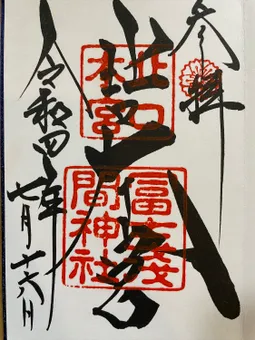 参拝
北口
本宮
冨士浅
間神社
令和四年七月十六日